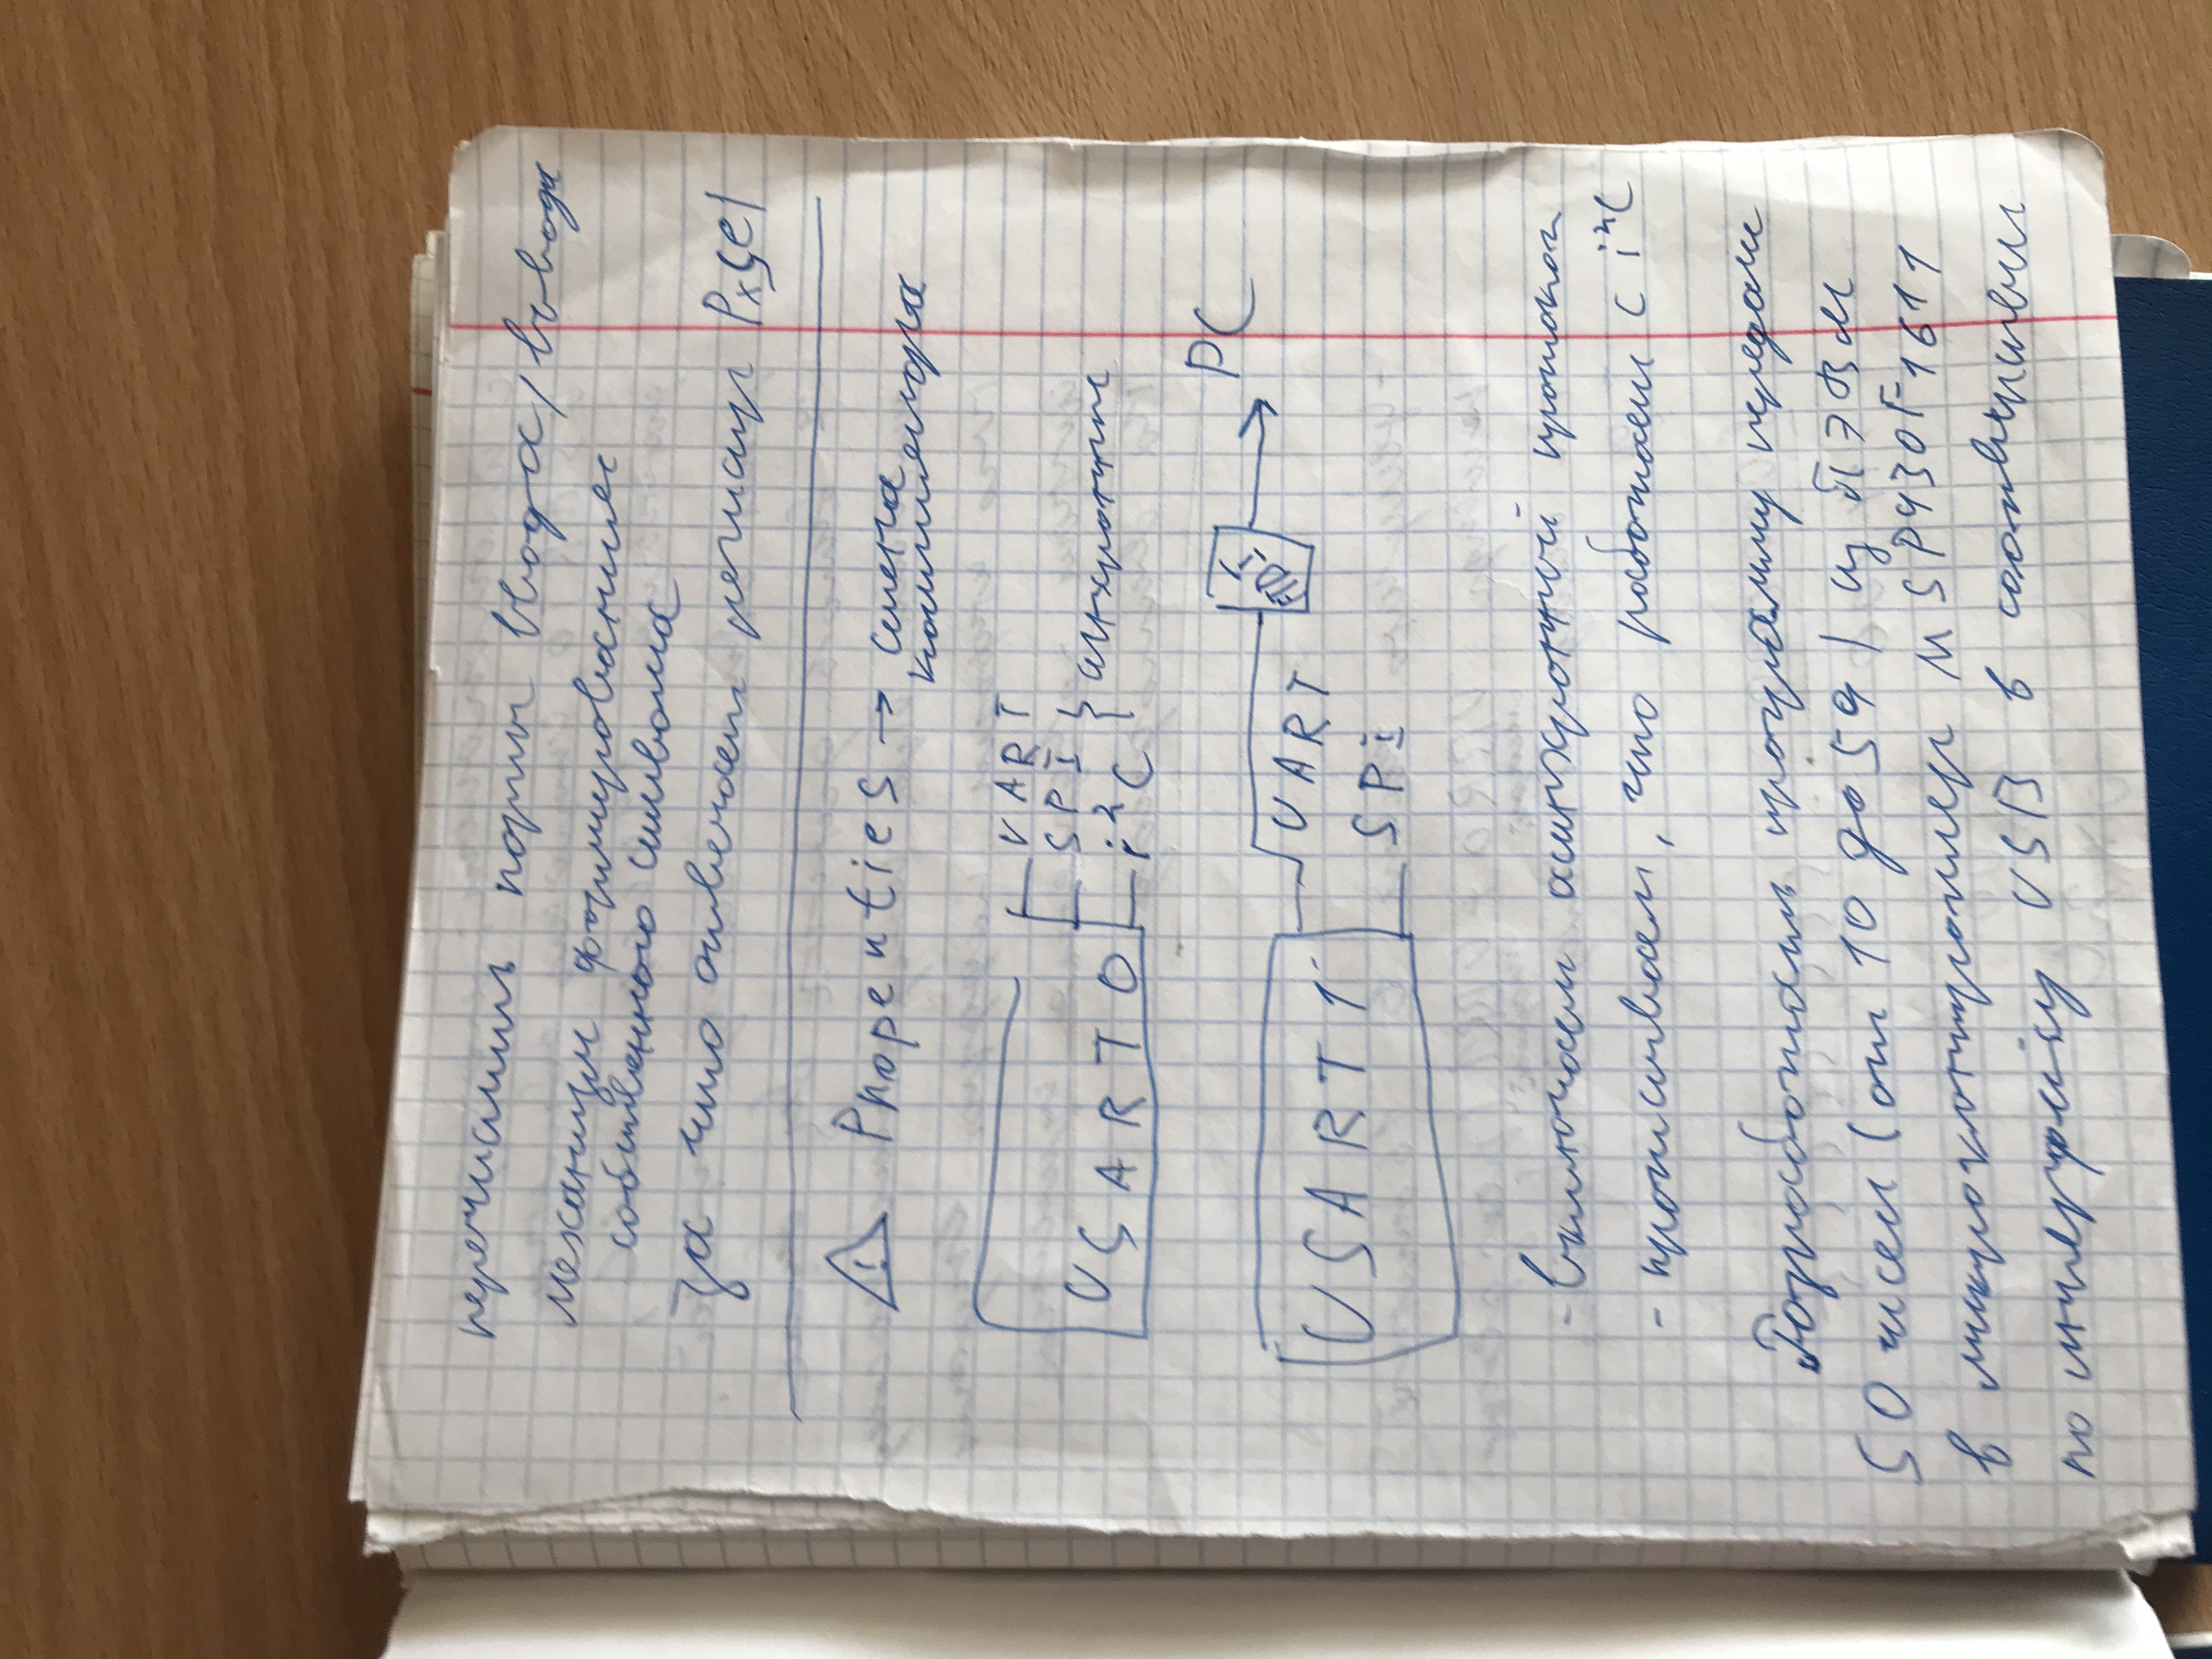 перечислить порты ввода/вывода
механизм формирования
собственного символа
За что отвечает регистр PxSel
! Properties → смена
компилятора
UART
SPI
USART0 i²C } синхронные
PC
FTDI
USART1 UART
SPI
- включаем асинхронный протокол
- прописываем, что работаем с i²C
Разработать программу передачи
50 чисел (от 10 до 59) из ПЭВМ
в микроконтроллер MSP430F1611
по интерфейсу USB в соответствии